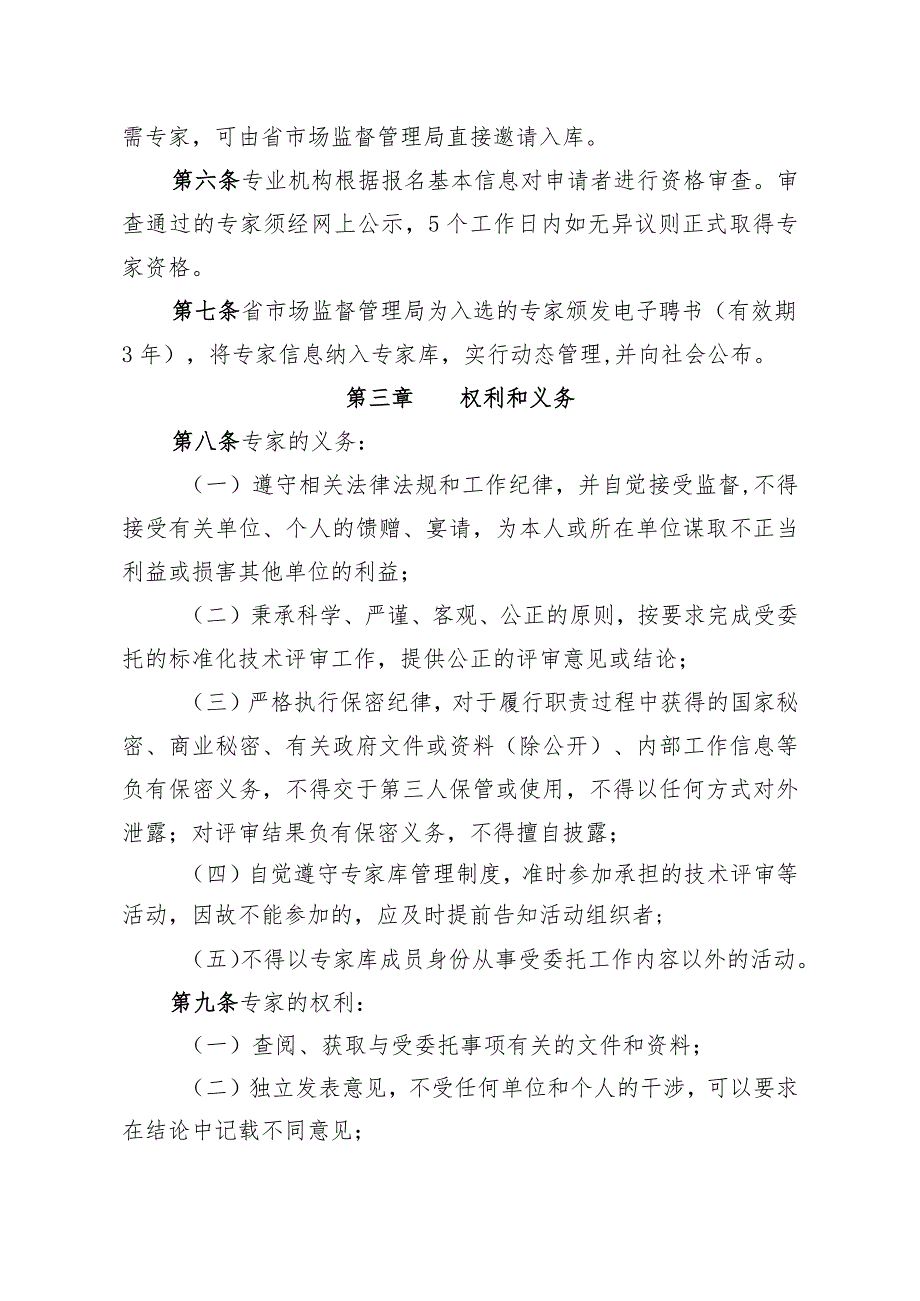 需专家，可由省市场监督管理局直接邀请入库。
第六条专业机构根据报名基本信息对申请者进行资格审查。审
查通过的专家须经网上公示，5 个工作日内如无异议则正式取得专
家资格。
第七条省市场监督管理局为入选的专家颁发电子聘书（有效期
3 年），将专家信息纳入专家库，实行动态管理,并向社会公布。
第三章　　权利和义务
第八条专家的义务：
（一）遵守相关法律法规和工作纪律，并自觉接受监督,不得
接受有关单位、个人的馈赠、宴请，为本人或所在单位谋取不正当
利益或损害其他单位的利益；
（二）秉承科学、严谨、客观、公正的原则，按要求完成受委
托的标准化技术评审工作，提供公正的评审意见或结论；
（三）严格执行保密纪律，对于履行职责过程中获得的国家秘
密、商业秘密、有关政府文件或资料（除公开）、内部工作信息等
负有保密义务，不得交于第三人保管或使用，不得以任何方式对外
泄露；对评审结果负有保密义务，不得擅自披露；
（四）自觉遵守专家库管理制度，准时参加承担的技术评审等
活动，因故不能参加的，应及时提前告知活动组织者;
（五）不得以专家库成员身份从事受委托工作内容以外的活动。
第九条专家的权利：
（一）查阅、获取与受委托事项有关的文件和资料；
（二）独立发表意见，不受任何单位和个人的干涉，可以要求
在结论中记载不同意见；